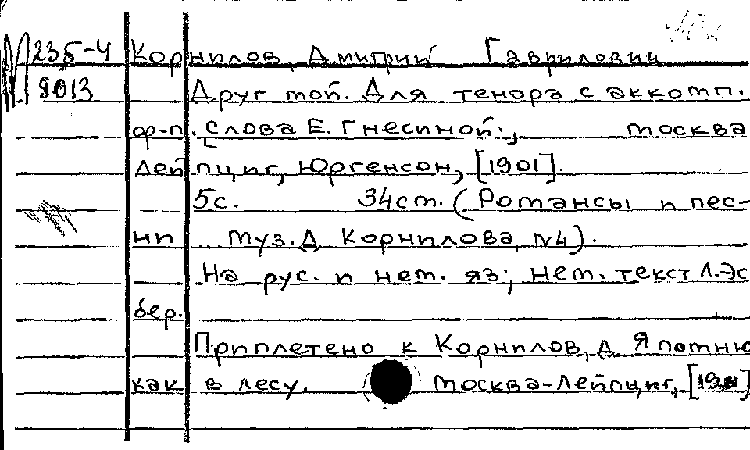 М 235-4 Корнилов, Дмитрий Гаврилович
9013 Друг мой. Для тенора с аккомп.
ф-п. Слова Е. Гнесиной., Москва
Лейпциг, Юргенсон, [1901].
5с. 34см. (Романсы и пес-
ни ... муз. Д Корнилова, №4).
На рус. и нем. яз; нем. текст Л. Эс
бер.
Приплетено к Корнилов, Д. Я помню
как в лесу. Москва-Лейпциг,